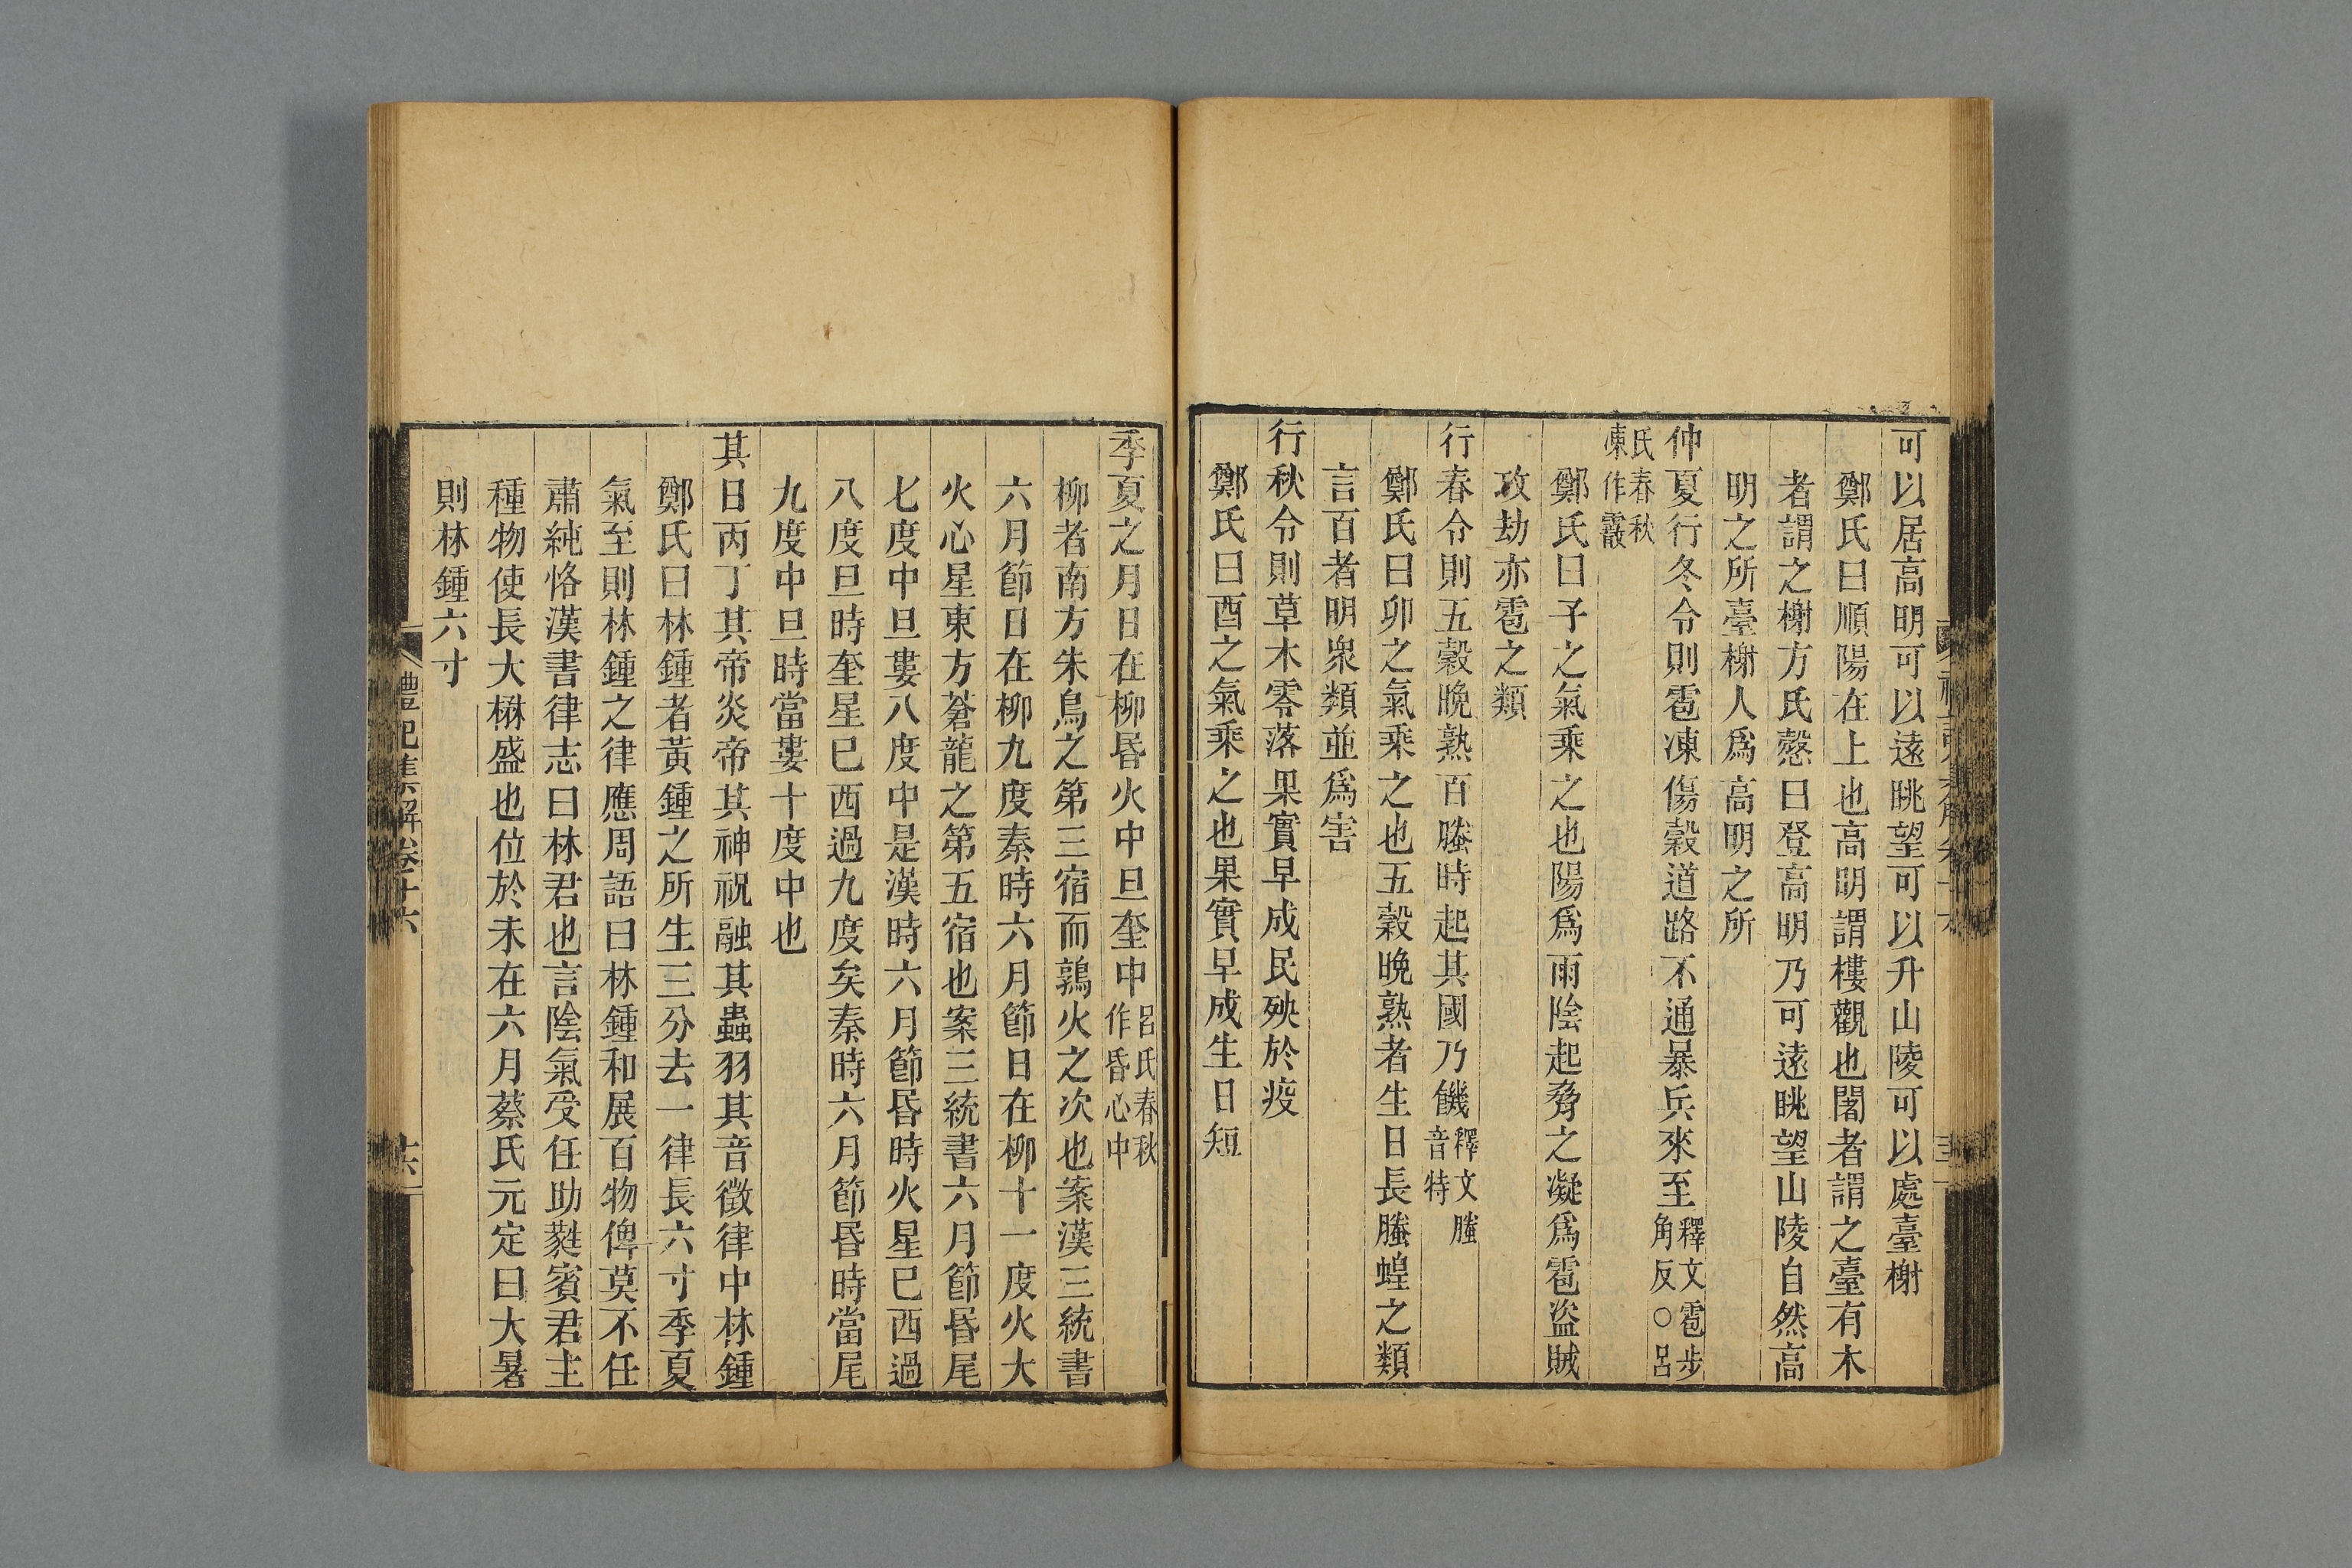 可以居高明可以遠眺望可以升山陵可以處臺榭
鄭氏曰順陽在上也高明謂樓觀也闍者謂之臺有木
者謂之榭方氏慤曰登高明乃可遠眺望山陵自然高
明之所臺榭人爲高明之所
仲夏行冬令則雹凍傷穀道路不通暴兵來至釋文雹步角反○呂
氏春秋凍作霰
鄭氏曰子之氣乘之也陽爲雨陰起脅之凝爲雹盜賊
攻劫亦雹之類
行春令則五穀晚熟百螣時起其國乃饑釋文螣音特
鄭氏曰卯之氣乘之也五穀晚熟者生日長螣蝗之類
言百者明衆類並爲害
行秋令則草木零落果實早成民殃於疫
鄭氏曰酉之氣乘之也果實早成生日短
季夏之月日在柳昏火中旦奎中呂氏春秋作昏心中
柳者南方朱鳥之第三宿而鶉火之次也案漢三統書
六月節日在柳九度秦時六月節日在柳十一度火大
火心星東方蒼龍之第五宿也案三統書六月節昏尾
七度中旦婁八度中是漢時六月節昏時火星已西過
八度旦時奎星已西過九度矣秦時六月節昏時當尾
九度中旦時當婁十度中也
其日丙丁其帝炎帝其神祝融其蟲羽其音徵律中林鍾
鄭氏曰林鍾者黃鍾之所生三分去一律長六寸季夏
氣至則林鍾之律應周語曰林鍾和展百物俾莫不任
肅純恪漢書律志曰林君也言陰氣受任助蕤賓君主
種物使長大楙盛也位於未在六月蔡氏元定曰大暑
則林鍾六寸
禮記集解卷十六